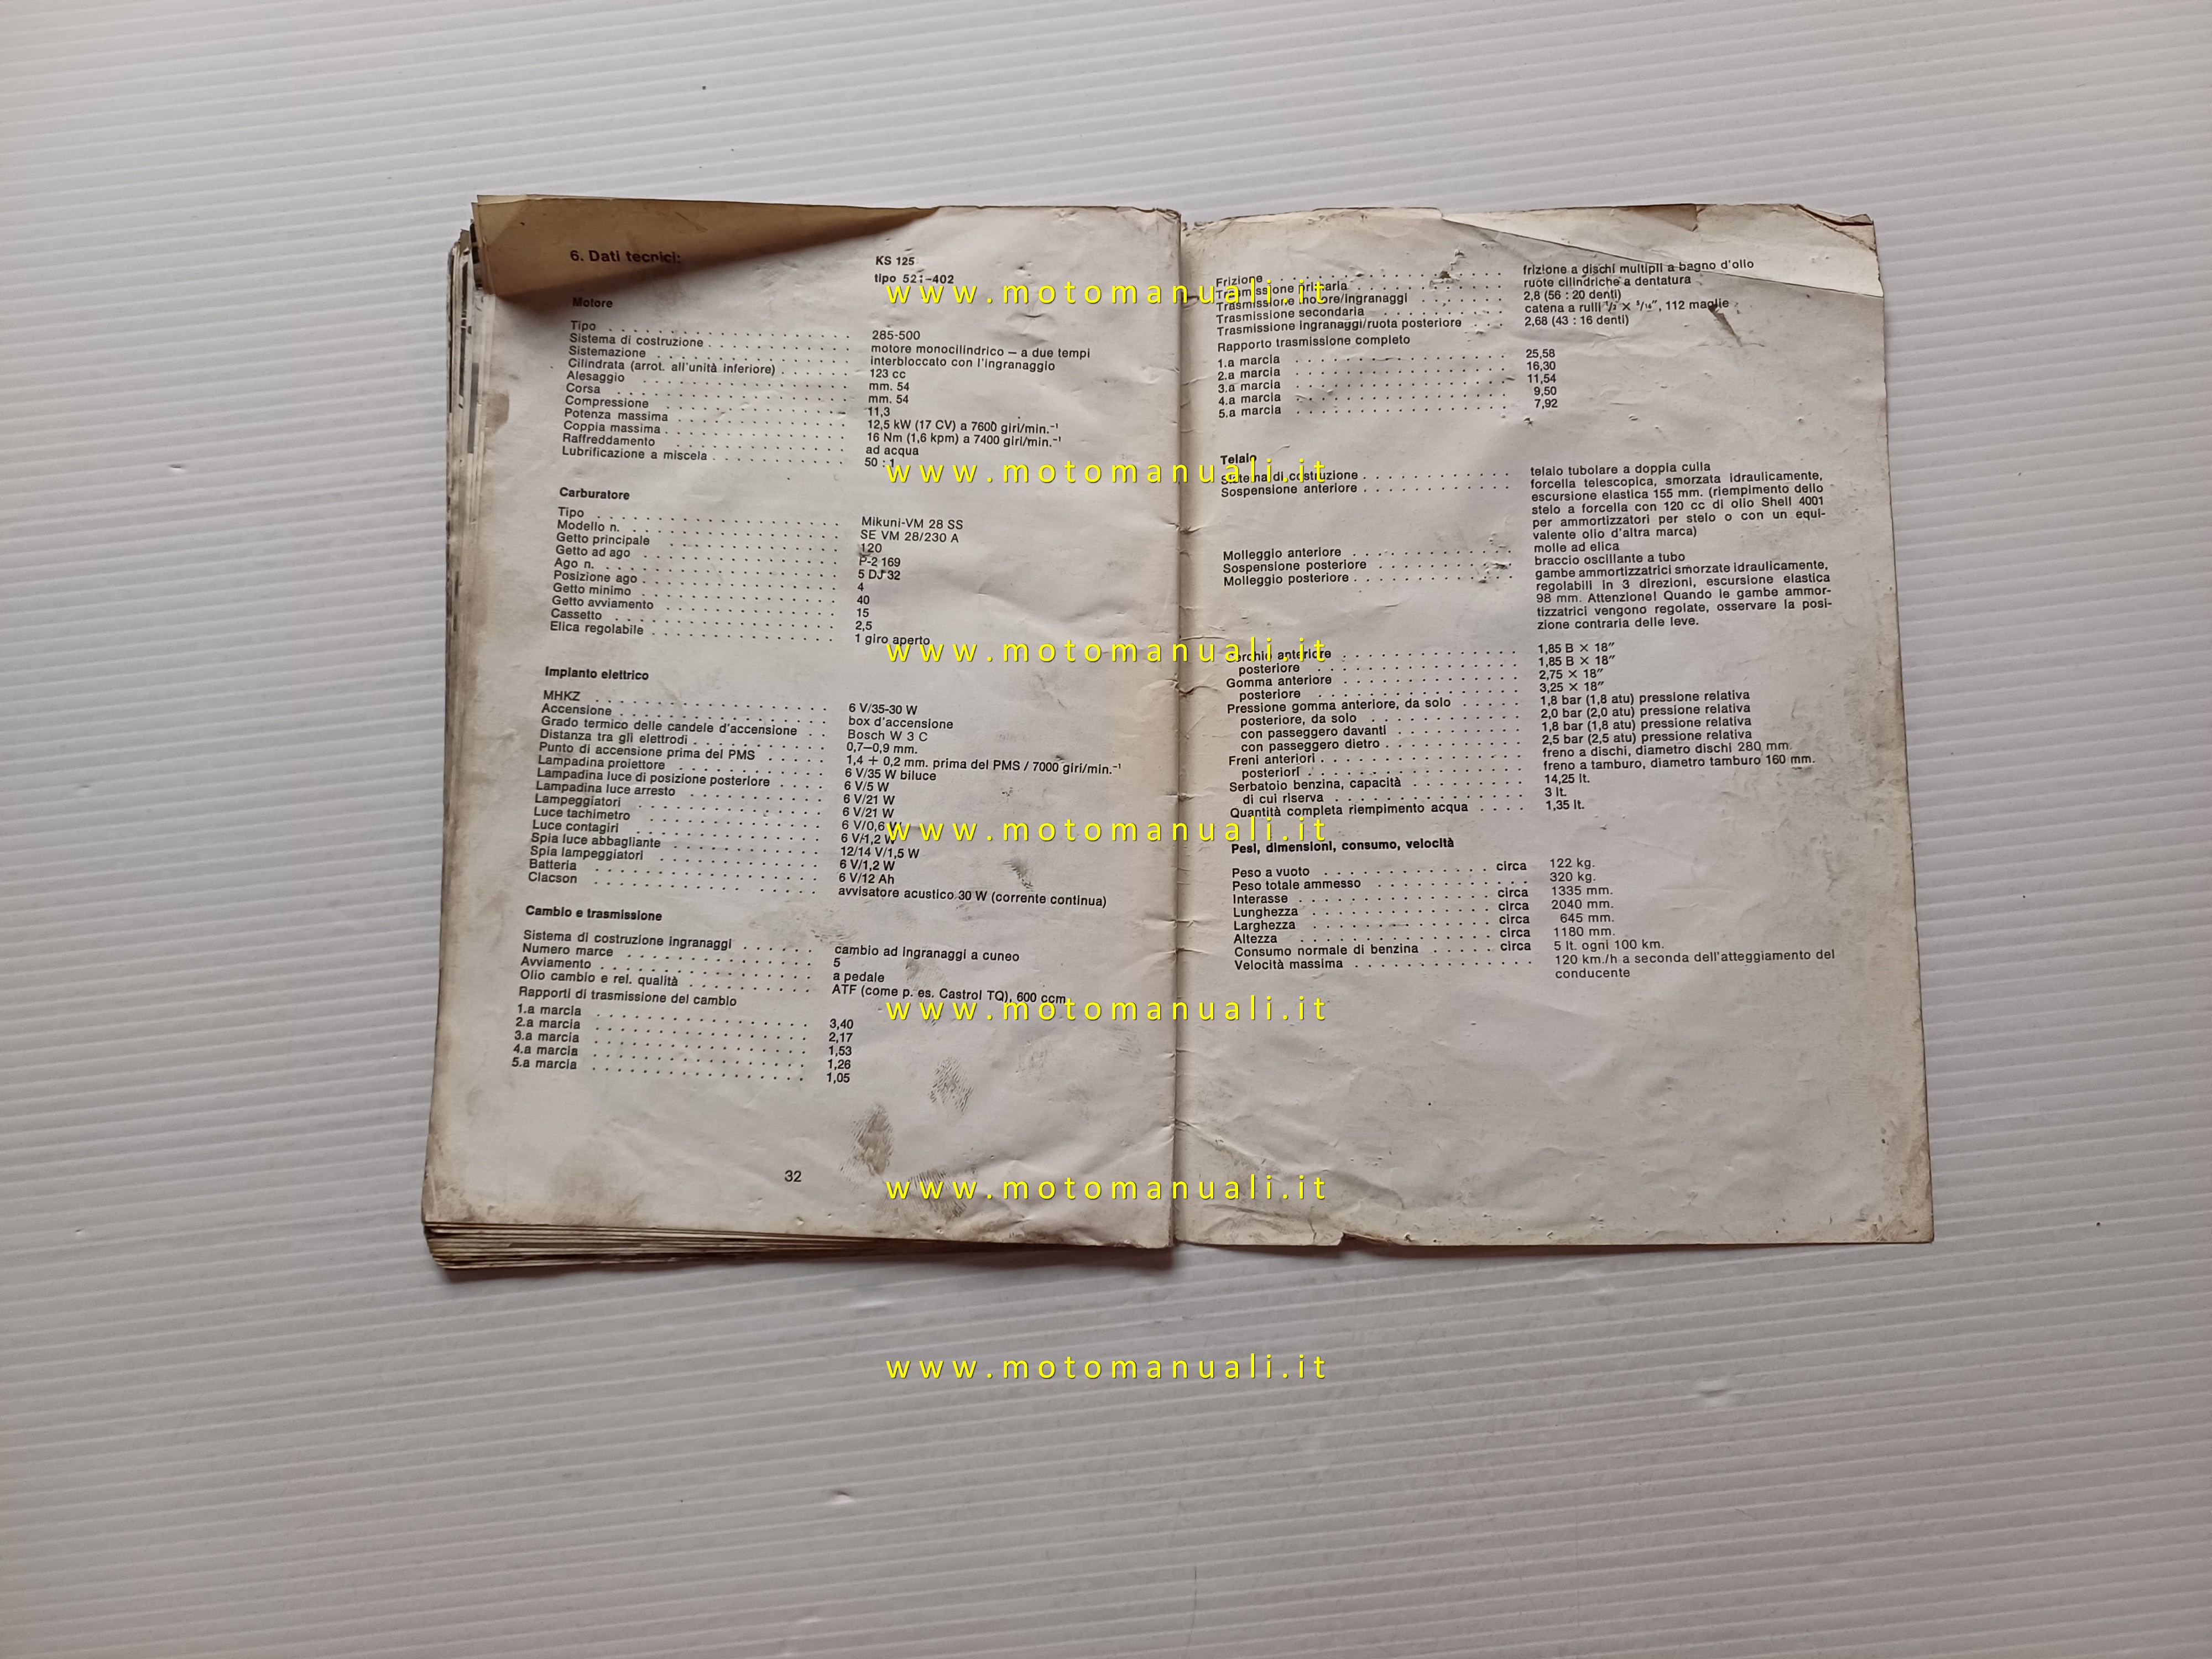 6. Dati tecnici:
KS 125
tipo 521-402
Motore
Tipo . . . 285-500
Sistema di costruzione . . . motore monocilindrico — a due tempi
Sistemazione . . . interbloccato con l'ingranaggio
Cilindrata (arrot. all'unità inferiore) . . . 123 cc
Alesaggio . . . mm. 54
Corsa . . . mm. 54
Compressione . . . 11,3
Potenza massima . . . 12,5 kW (17 CV) a 7600 giri/min.⁻¹
Coppia massima . . . 16 Nm (1,6 kpm) a 7400 giri/min.⁻¹
Raffreddamento . . . ad acqua
Lubrificazione a miscela . . . 50 : 1
Carburatore
Tipo . . . Mikuni-VM 28 SS
Modello n. . . . SE VM 28/230 A
Getto principale . . . 120
Getto ad ago . . . P-2 169
Ago n. . . . 5 DJ 32
Posizione ago . . . 4
Getto minimo . . . 40
Getto avviamento . . . 15
Cassetto . . . 2,5
Elica regolabile . . . 1 giro aperto
Impianto elettrico
MHKZ . . . 6 V/35-30 W
Accensione . . . box d'accensione
Grado termico delle candele d'accensione . . Bosch W 3 C
Distanza tra gli elettrodi . . . 0,7—0,9 mm.
Punto di accensione prima del PMS . . . 1,4 + 0,2 mm. prima del PMS / 7000 giri/min.⁻¹
Lampadina proiettore . . . 6 V/35 W biluce
Lampadina luce di posizione posteriore . . . 6 V/5 W
Lampadina luce arresto . . . 6 V/21 W
Lampeggiatori . . . 6 V/21 W
Luce tachimetro . . . 6 V/0,6 W
Luce contagiri . . . 6 V/1,2 W
Spia luce abbagliante . . . 12/14 V/1,5 W
Spia lampeggiatori . . . 6 V/1,2 W
Batteria . . . 6 V/12 Ah
Clacson . . . avvisatore acustico 30 W (corrente continua)
Cambio e trasmissione
Sistema di costruzione ingranaggi . . . cambio ad ingranaggi a cuneo
Numero marce . . . 5
Avviamento . . . a pedale
Olio cambio e rel. qualità . . . ATF (come p. es. Castrol TQ), 600 ccm
Rapporti di trasmissione del cambio
1.a marcia . . . 3,40
2.a marcia . . . 2,17
3.a marcia . . . 1,53
4.a marcia . . . 1,26
5.a marcia . . . 1,05
32
Frizione . . . frizione a dischi multipli a bagno d'olio
Trasmissione primaria . . . ruote cilindriche a dentatura
Trasmissione motore/ingranaggi . . . 2,8 (56 : 20 denti)
Trasmissione secondaria . . . catena a rulli ¹/₂ × ⁵/₁₆″, 112 maglie
Trasmissione ingranaggi/ruota posteriore . . . 2,68 (43 : 16 denti)
Rapporto trasmissione completo
1.a marcia . . . 25,58
2.a marcia . . . 16,30
3.a marcia . . . 11,54
4.a marcia . . . 9,50
5.a marcia . . . 7,92
Telaio
Sistema di costruzione . . . telaio tubolare a doppia culla
Sospensione anteriore . . . forcella telescopica, smorzata idraulicamente,
escursione elastica 155 mm. (riempimento dello
stelo a forcella con 120 cc di olio Shell 4001
per ammortizzatori per stelo o con un equi-
valente olio d'altra marca)
Molleggio anteriore . . . molle ad elica
Sospensione posteriore . . . braccio oscillante a tubo
Molleggio posteriore . . . gambe ammortizzatrici smorzate idraulicamente,
regolabili in 3 direzioni, escursione elastica
98 mm. Attenzione! Quando le gambe ammor-
tizzatrici vengono regolate, osservare la posi-
zione contraria delle leve.
Cerchio anteriore . . . 1,85 B × 18″
posteriore . . . 1,85 B × 18″
Gomma anteriore . . . 2,75 × 18″
posteriore . . . 3,25 × 18″
Pressione gomma anteriore, da solo . . . 1,8 bar (1,8 atu) pressione relativa
posteriore, da solo . . . 2,0 bar (2,0 atu) pressione relativa
con passeggero davanti . . . 1,8 bar (1,8 atu) pressione relativa
con passeggero dietro . . . 2,5 bar (2,5 atu) pressione relativa
Freni anteriori . . . freno a dischi, diametro dischi 280 mm.
posteriori . . . freno a tamburo, diametro tamburo 160 mm.
Serbatoio benzina, capacità . . . 14,25 lt.
di cui riserva . . . 3 lt.
Quantità completa riempimento acqua . . . 1,35 lt.
Pesi, dimensioni, consumo, velocità
Peso a vuoto . . . circa 122 kg.
Peso totale ammesso . . . 320 kg.
Interasse . . . circa 1335 mm.
Lunghezza . . . circa 2040 mm.
Larghezza . . . circa 645 mm.
Altezza . . . circa 1180 mm.
Consumo normale di benzina . . . circa 5 lt. ogni 100 km.
Velocità massima . . . 120 km./h a seconda dell'atteggiamento del
conducente
www.motomanuali.it
www.motomanuali.it
www.motomanuali.it
www.motomanuali.it
www.motomanuali.it
www.motomanuali.it
www.motomanuali.it